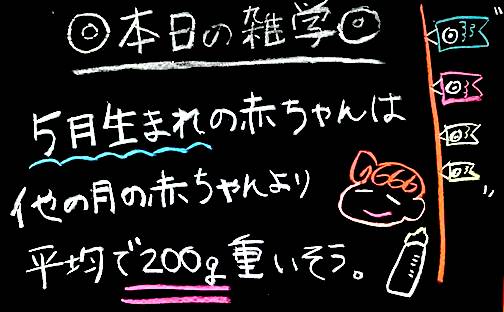 ◎本日の雑学◎
5月生まれの赤ちゃんは
他の月の赤ちゃんより
平均で200g重いそう。